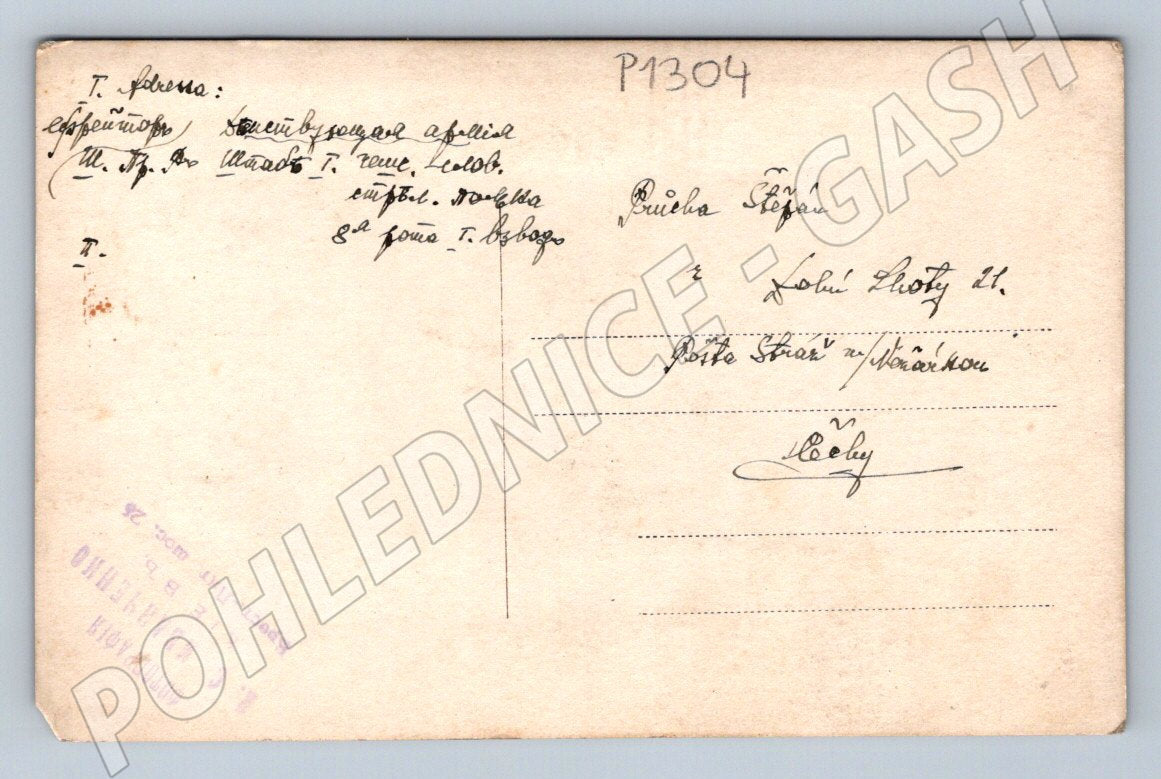 P1304
I. Adressa:
ефрейторъ Действующая армія
Ш. Пр. Штабъ I. чеш. слов.
стрѣл. полка
8я рота I. взводъ
II.
Průcha Štěpán
z Dolní Lhoty 21.
Pošta Stráž n/Nežárkou
Čechy
шос. 25
Е В Ъ
POHLEDNICE - GASH